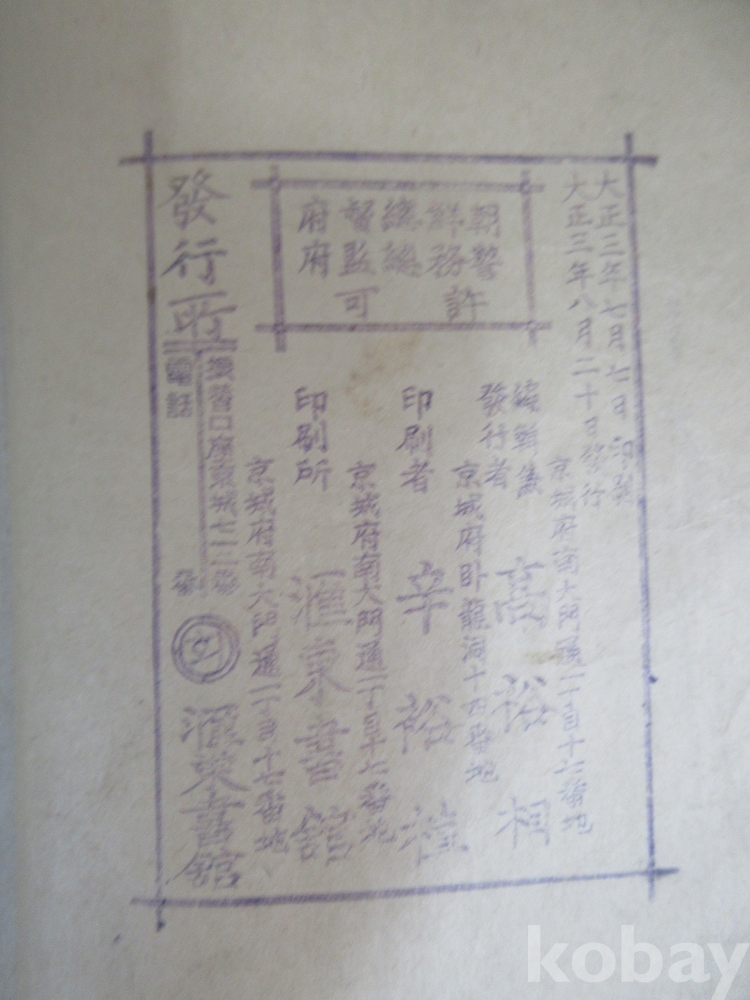 大正三年七月七日 印刷
大正三年八月二十日發行
京城府南大門通一丁目十七番地
編輯兼
發行者 高裕相
京城府臥龍洞十六番地
印刷者 辛裕植
京城府南大門通一丁目十七番地
印刷所 滙東書館
京城府南大門通一丁目十七番地
朝鮮總督府
警務總監府
許可
發行所
振替口座京城七一二番
電話 番
滙東書館
kobay